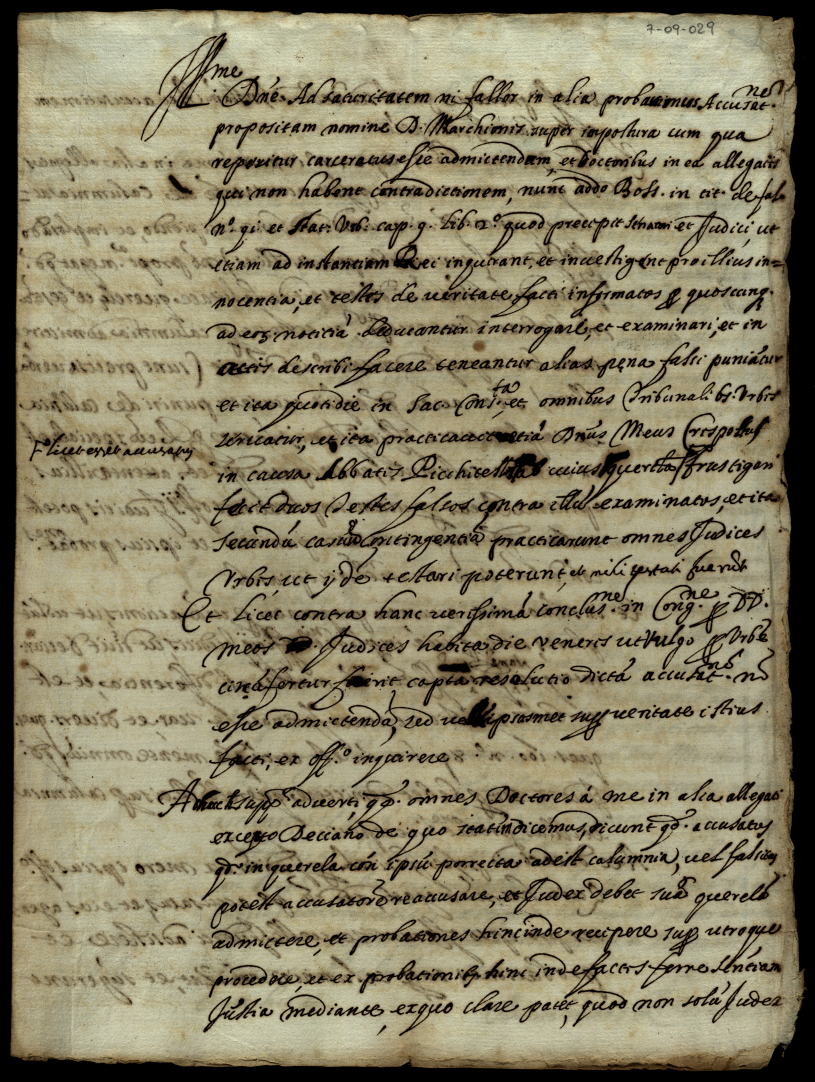 7-09-029
Ill.me
Dñe. Ad saturitatem ni fallor in alia probavimus Accusat.nem
propositam nomine D. Marchionis super impostura cum qua
reperitur carceratus esse admictendam, et Doctoribus in ea allegatis
qui non habent contradictionem, nunc addo Boss. in tit. de fal.
n.º 91. et Stat. Urb. cap. 9. lib. 2.º quod precipit et Judici ut
etiam ad instantiam Rei inquirant, et investigent pro illius in=
nocentia, et testes de veritate facti informatos p quoscunq.
ad eor noticiã deducantur interrogare, et examinari, et in
actis describi facere teneantur alias pena falsi puniãtur
et ita quotidie in Sac. Cons.ne, et omnibus Tribunalibs. Urbis
versatur, et ita practicavit etiã Dñus Meus Crispoltus
F.º licet esset accusatus
in causa Abbatis Picchitelli cuius querela frustigari
fecit duos testes falsos contra illũ examinatos, et ita
secundũ casuũ contingentiã practicarunt omnes Judices
Urbis ut ijde testari poterunt, et mihi testati fuerũt
Et licet contra hanc verissimã conclus.nem in Cong.ne p DD.
meos Judices habita die Veneris ut vulgo p Urbẽ
circũfertur fuerit capta resolutio dictã accusat.nem nõ
esse admictendã, sed vel ipsosmet sup veritate istius
facti, ex off.º inquirere
sup. adverti, qd. omnes Doctores à me in alia allegati
excepto Deciano de quo statim dicemus, dicunt qd. accusatus
qd. in querela cõn ipsũ porrecta adest calumnia, vel falsitas
potest accusatorẽ reaccusare, et Judex debet suã querelã
admictere, et probationes hincinde recipere sup utroque
procedere, et ex probationibs hinc inde factis ferre sentẽtiam
Justitia mediante, ex quo clare patet, quod non solũ Judex